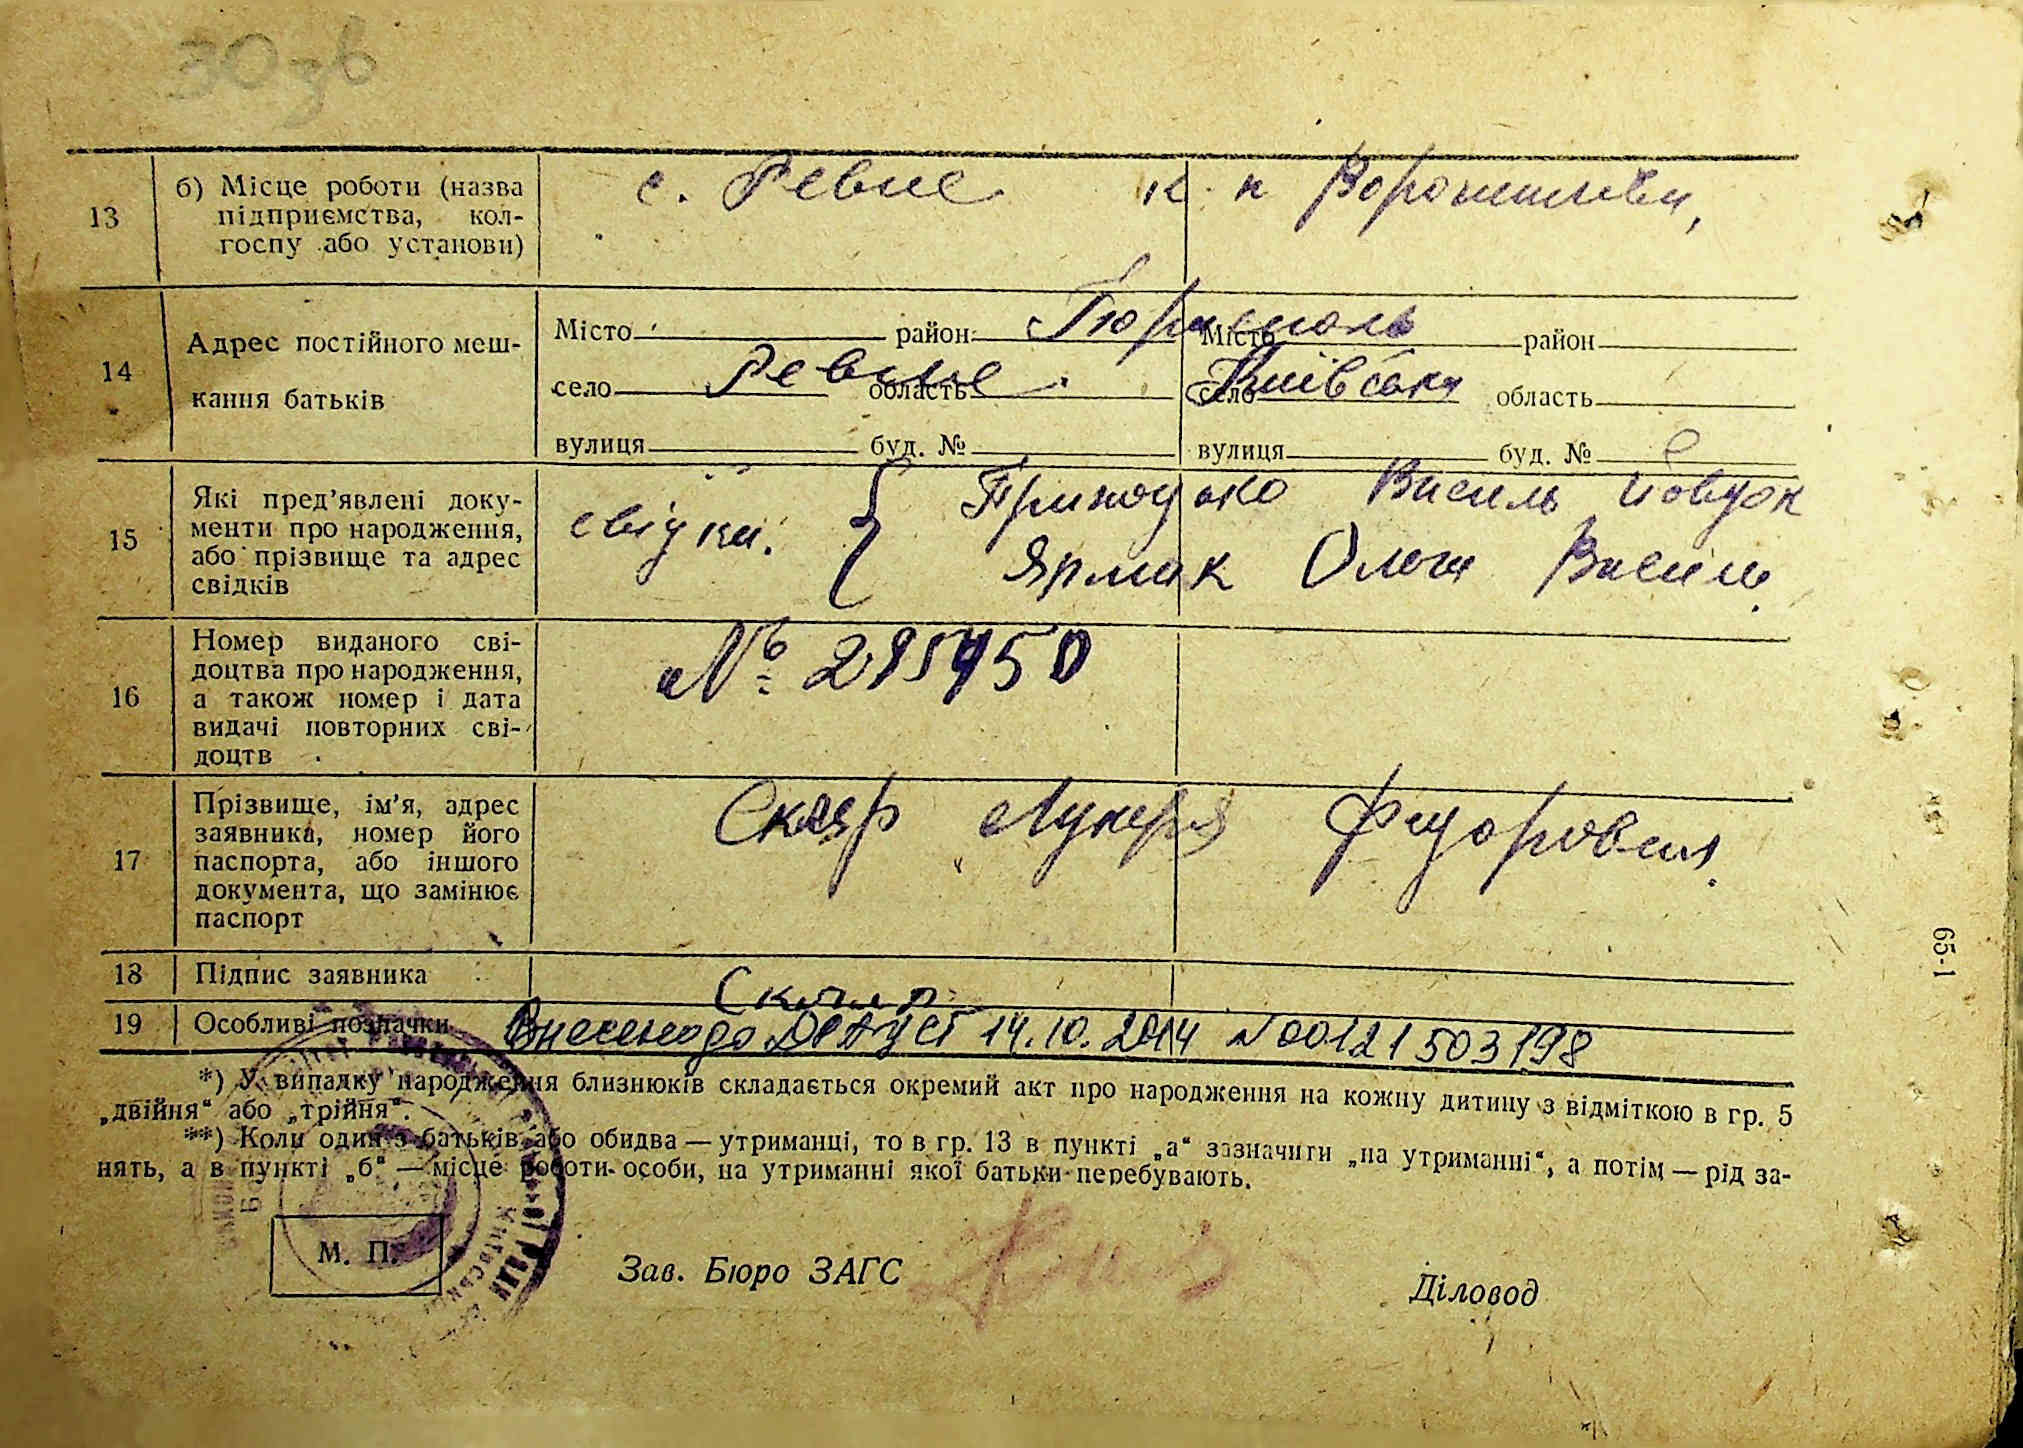 30зв
13
б) Місце роботи (назва
підприємства, кол-
госпу або установи)
с. Ревне к. к Ворошилова,
14
Адрес постійного меш-
кання батьків
Місто район Бориспіль Місто район
село Ревне область Київська село область
вулиця буд. № вулиця буд. №
15
Які пред'явлені доку-
менти про народження,
або прізвище та адрес
свідків
свідки. { Приходько Василь Явдок
Ярмак Ольга Васил.
16
Номер виданого сві-
доцтва про народження,
а також номер і дата
видачі повторних сві-
доцтв
№ 295450
17
Прізвище, ім'я, адрес
заявника, номер його
паспорта, або іншого
документа, що замінює
паспорт
Скляр Лукеря Федоровна.
18 Підпис заявника Скляр
19 Особливі позначки Внесено до ДРАЦСГ 14.10.2014 N 00121503198
*) У випадку народження близнюків складається окремий акт про народження на кожну дитину з відміткою в гр. 5
„двійня“ або „трійня“.
**) Коли один з батьків або обидва — утриманці, то в гр. 13 в пункті „а“ зазначити „на утриманні“, а потім — рід за-
нять, а в пункті „б“ — місце роботи особи, на утриманні якої батьки перебувають.
М. П.
Зав. Бюро ЗАГС
Діловод
65-1